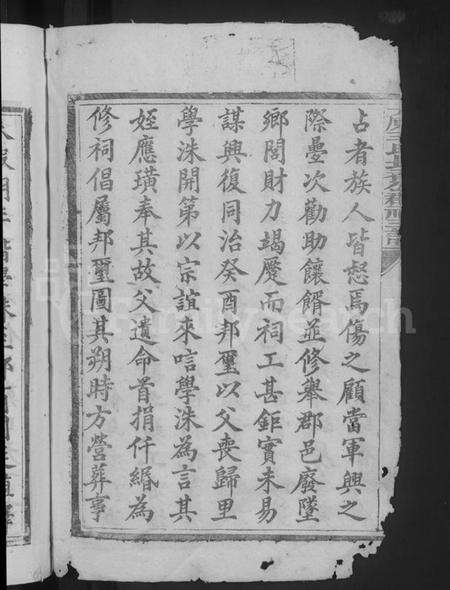 占者族人皆怒焉傷之顧當軍興之
際曡次勸助饟餫並修舉郡邑廢墜
鄉閭財力竭蹷而祠工甚鉅實未易
謀興復同治癸酉邦璽以父喪歸里
學洙開第以宗誼來唁學洙為言其
姪應璜奉其故父遺命首捐仟緡為
修祠倡屬邦璽圖其朔時方營葬事
FamilySearch